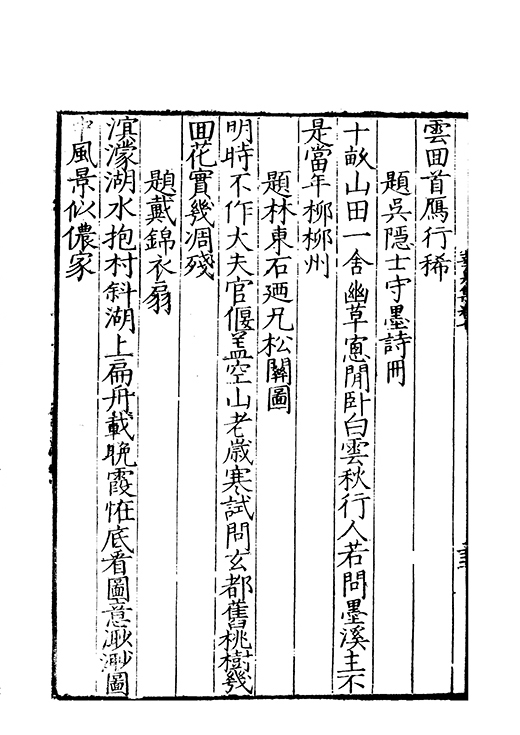 雲囬首鴈行稀
題吳隱士守墨詩冊
十畝山田一舍幽草窓閒卧白雲秋行人若問墨溪主不
是當年柳柳州
題林東石廼兄松關圖
明時不作大夫官偃蓋空山老歲寒試問玄都舊桃樹幾
囬花實幾凋殘
題戴錦衣扇
溟濛湖水抱村斜湖上扁舟載晚霞恠底看圖意渺渺圖
中風景似儂家